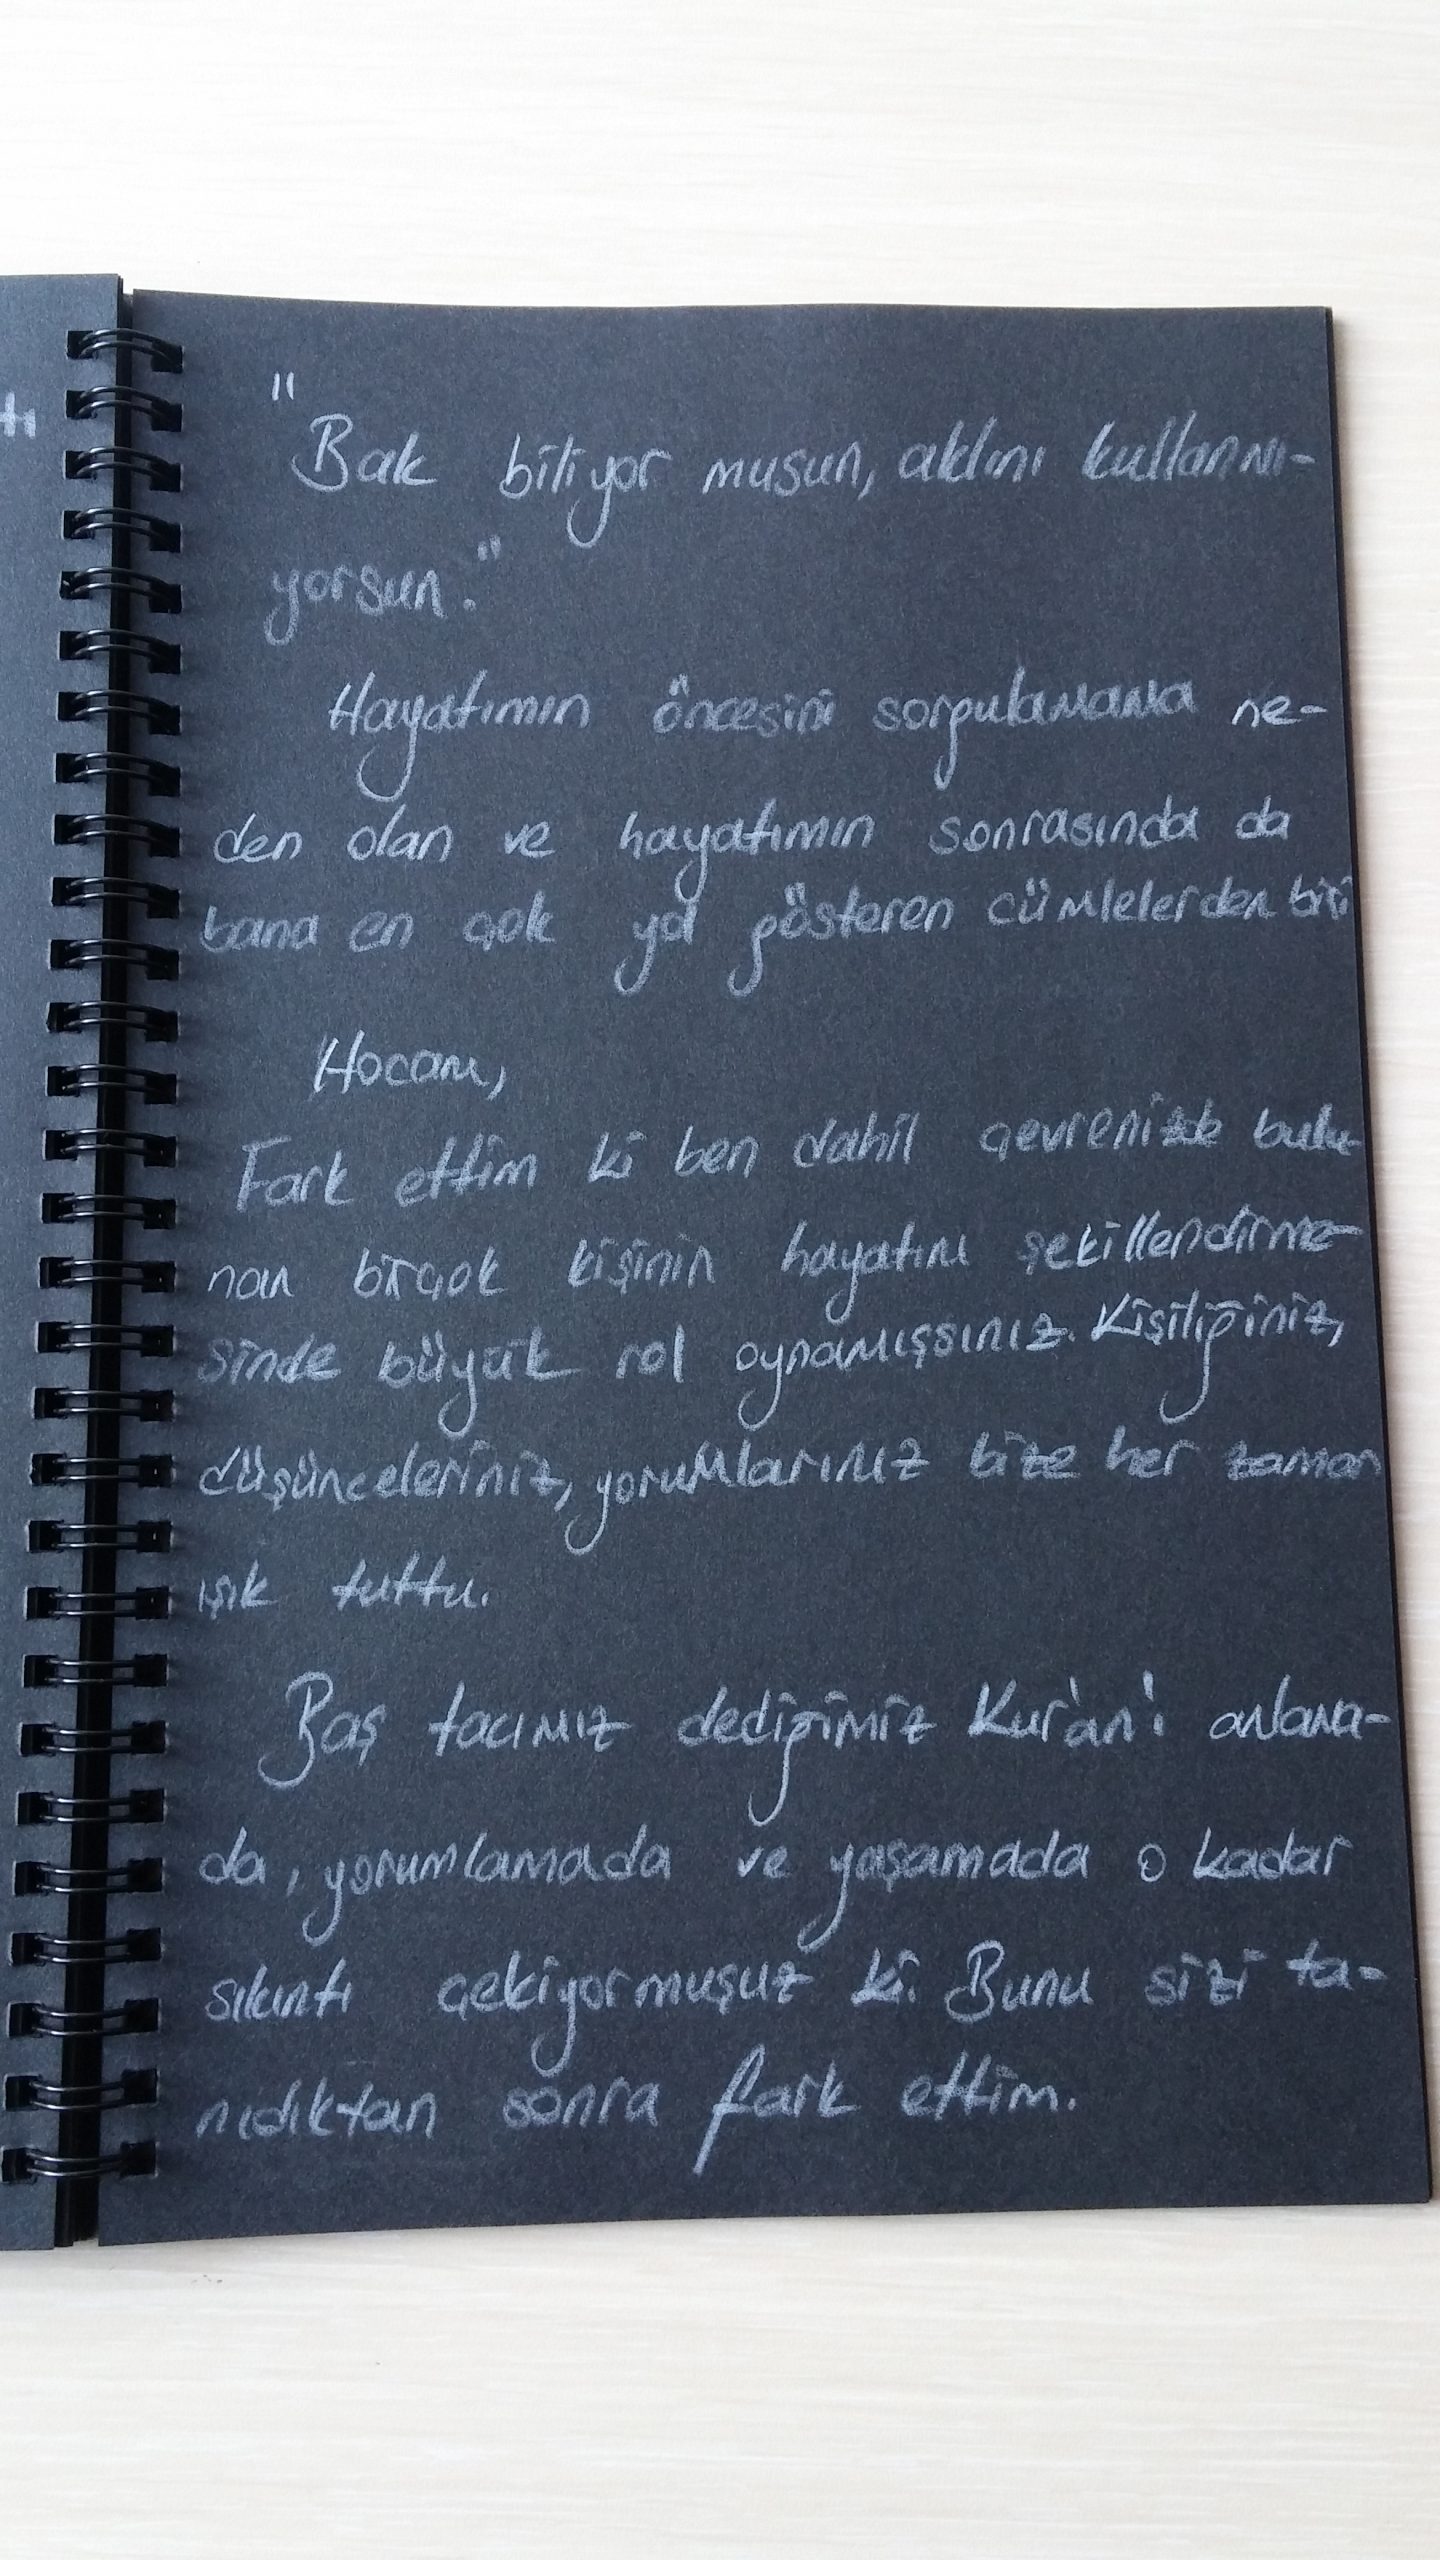 tı
"Bak biliyor musun, aklını kullanmı-
yorsun."
Hayatımın öncesini sorgulamama ne-
den olan ve hayatımın sonrasında da
bana en çok yol gösteren cümlelerden biri
Hocam,
Fark ettim ki ben dahil çevrenizde bulu-
nan birçok kişinin hayatını şekillendirme-
sinde büyük rol oynamışsınız. Kişiliğiniz,
düşünceleriniz, yorumlarınız bize her zaman
ışık tuttu.
Baş tacımız dediğimiz Kur'an'ı anlama-
da, yorumlamada ve yaşamada o kadar
sıkıntı çekiyormuşuz ki. Bunu sizi ta-
nıdıktan sonra fark ettim.